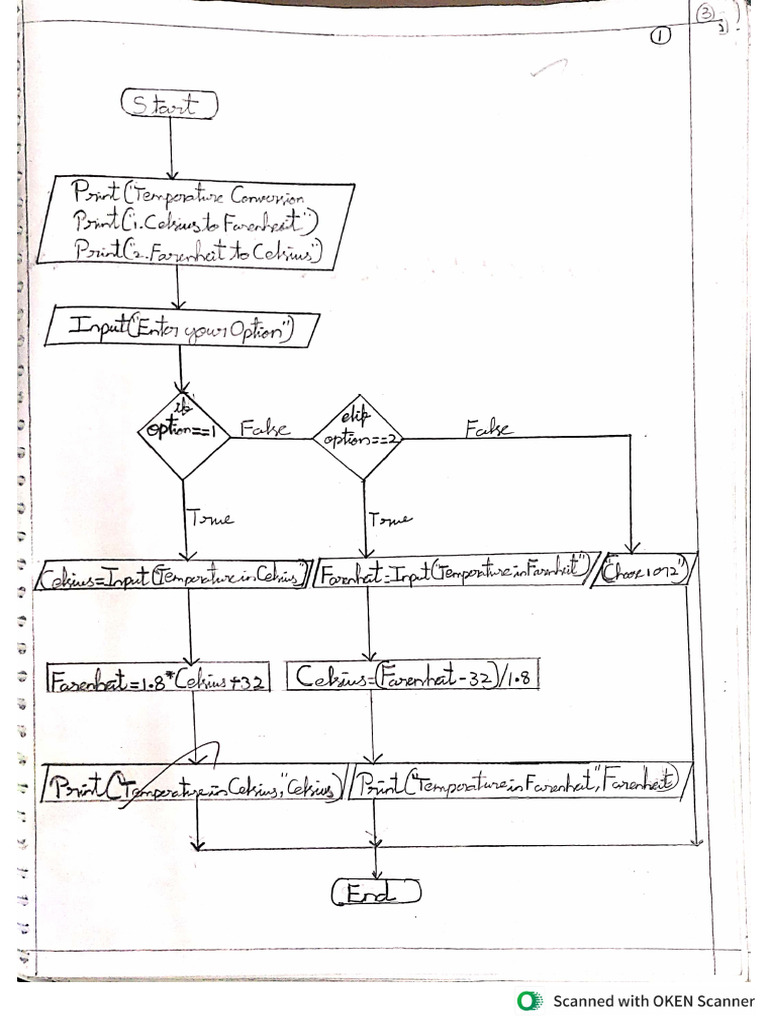 3
1
Start
Print("Temperature Conversion
Print("1.Celsius to Farenheit")
Print("2.Farenheit to Celsius")
Input("Enter your Option")
if
option==1
False
elif
option==2
False
True
True
Celsius=Input("Temperature in Celsius")
Farenheit=Input("Temperature in Farenheit")
"Choose 1 or 2")
Farenheit=1.8*Celsius+32
Celsius=(Farenheit-32)/1.8
Print("Temperature in Celsius,"Celsius)
Print("Temperature in Farenheit",Farenheit)
End
Scanned with OKEN Scanner